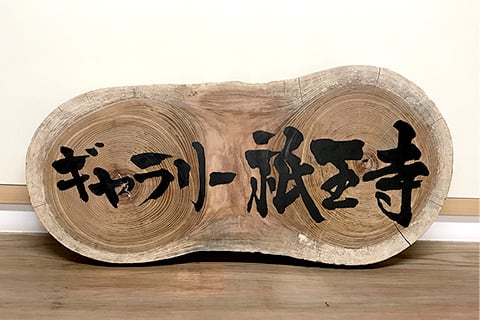 ギャラリー祇王寺